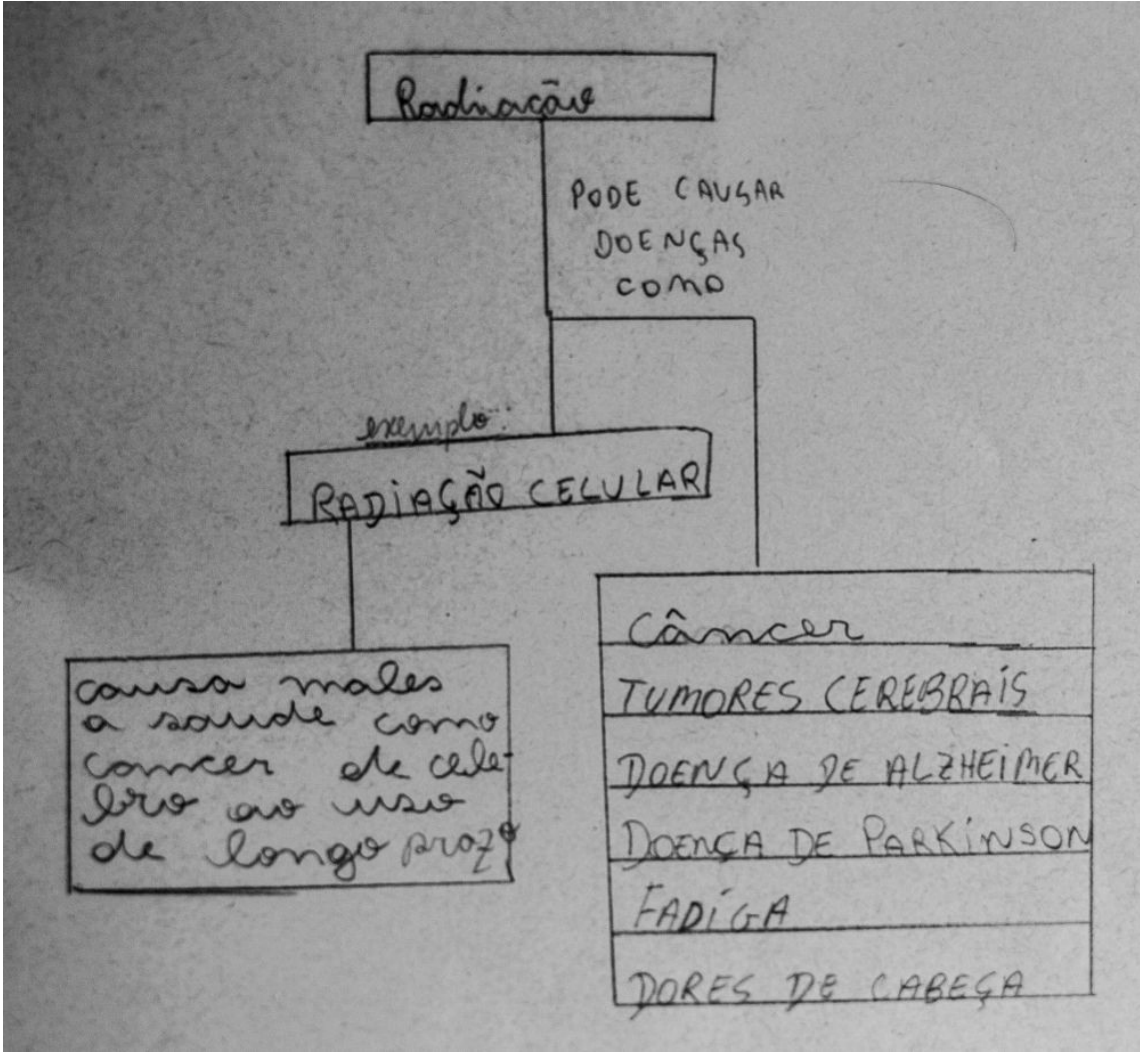 Radiação
PODE CAUSAR
DOENÇAS
COMO
exemplo:
RADIAÇÃO CELULAR
causa males
a saude como
cancer de cele-
bro ao uso
de longo prazo
Câncer
TUMORES CEREBRAIS
DOENÇA DE ALZHEIMER
DOENÇA DE PARKINSON
FADIGA
DORES DE CABEÇA